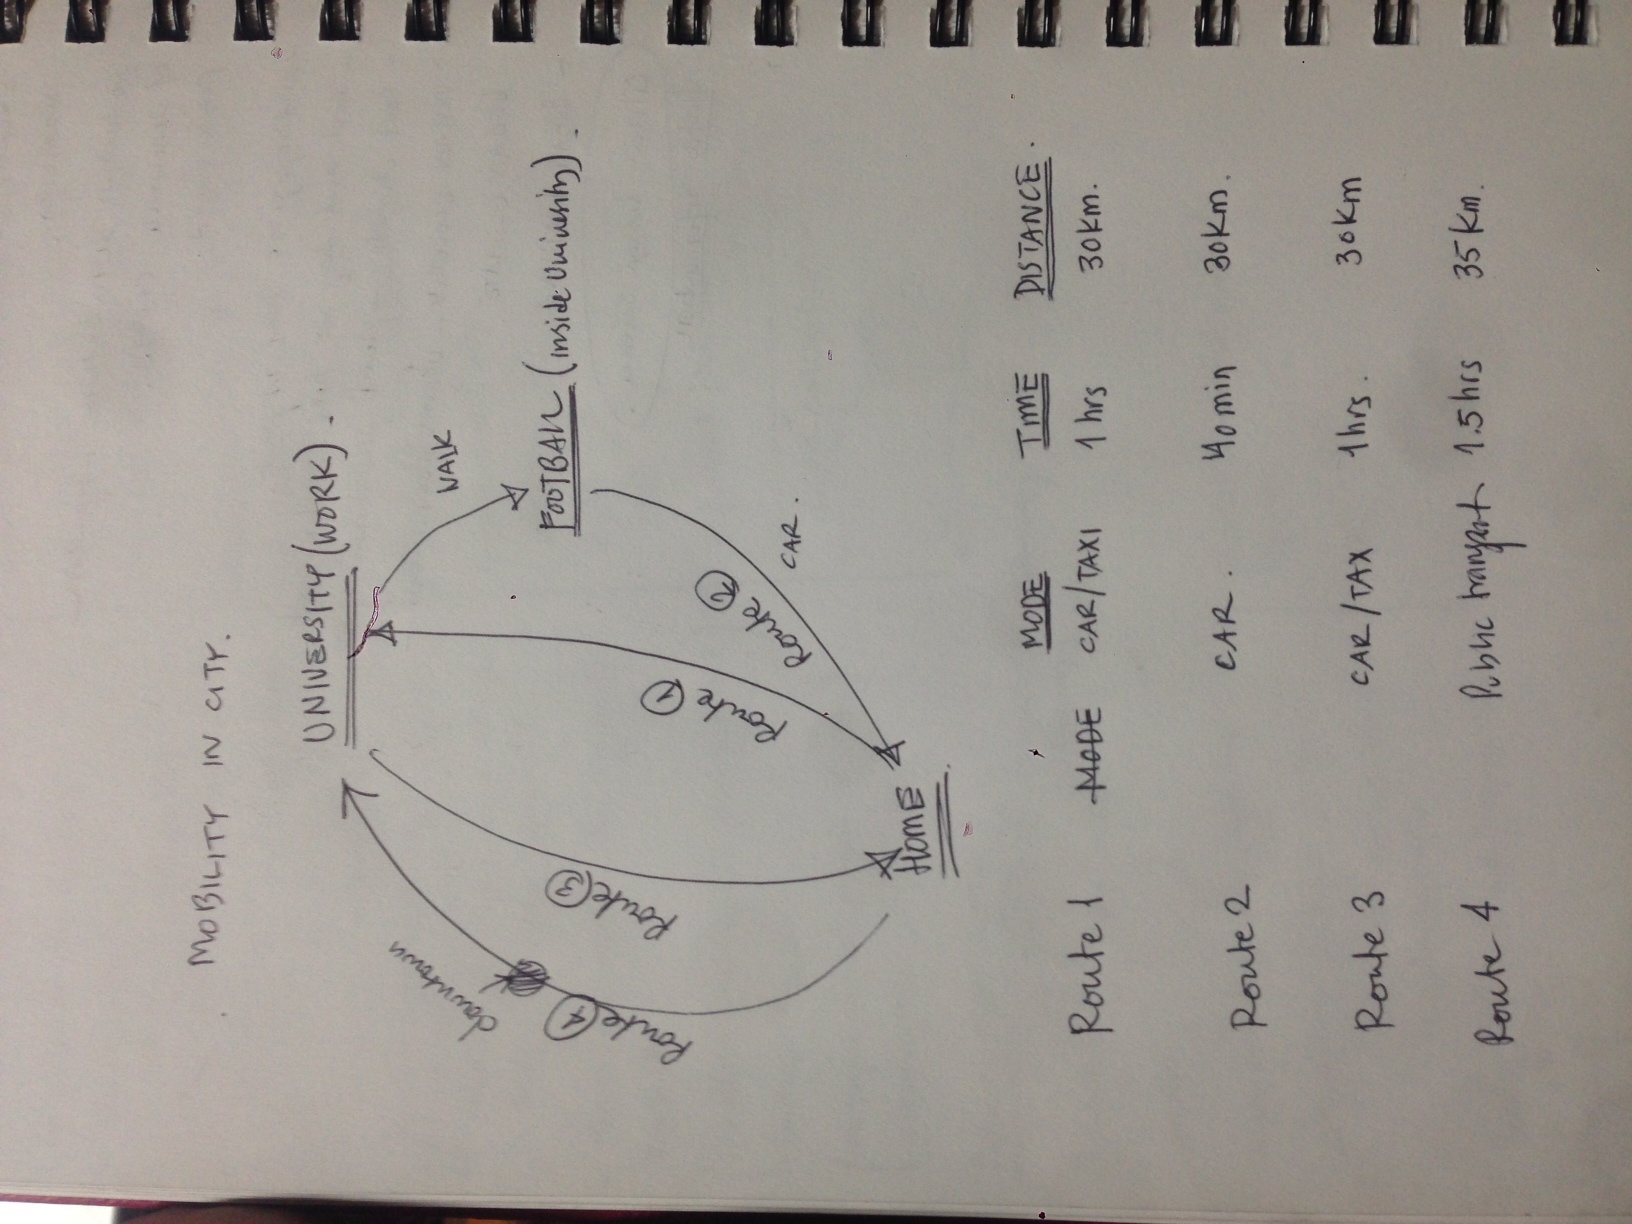 MOBILITY IN CITY.
UNIVERSITY (WORK).
WALK
downtown
FOOTBALL (inside University).
Route 4
Route 3
Route 1
Route 2
CAR.
HOME
MODE TIME DISTANCE.
Route 1 MODE CAR/TAXI 1 hrs 30km.
Route 2 CAR. 40 min 30km.
Route 3 CAR/TAX 1hrs. 30km
Route 4 Public transport 1.5 hrs 35 km.